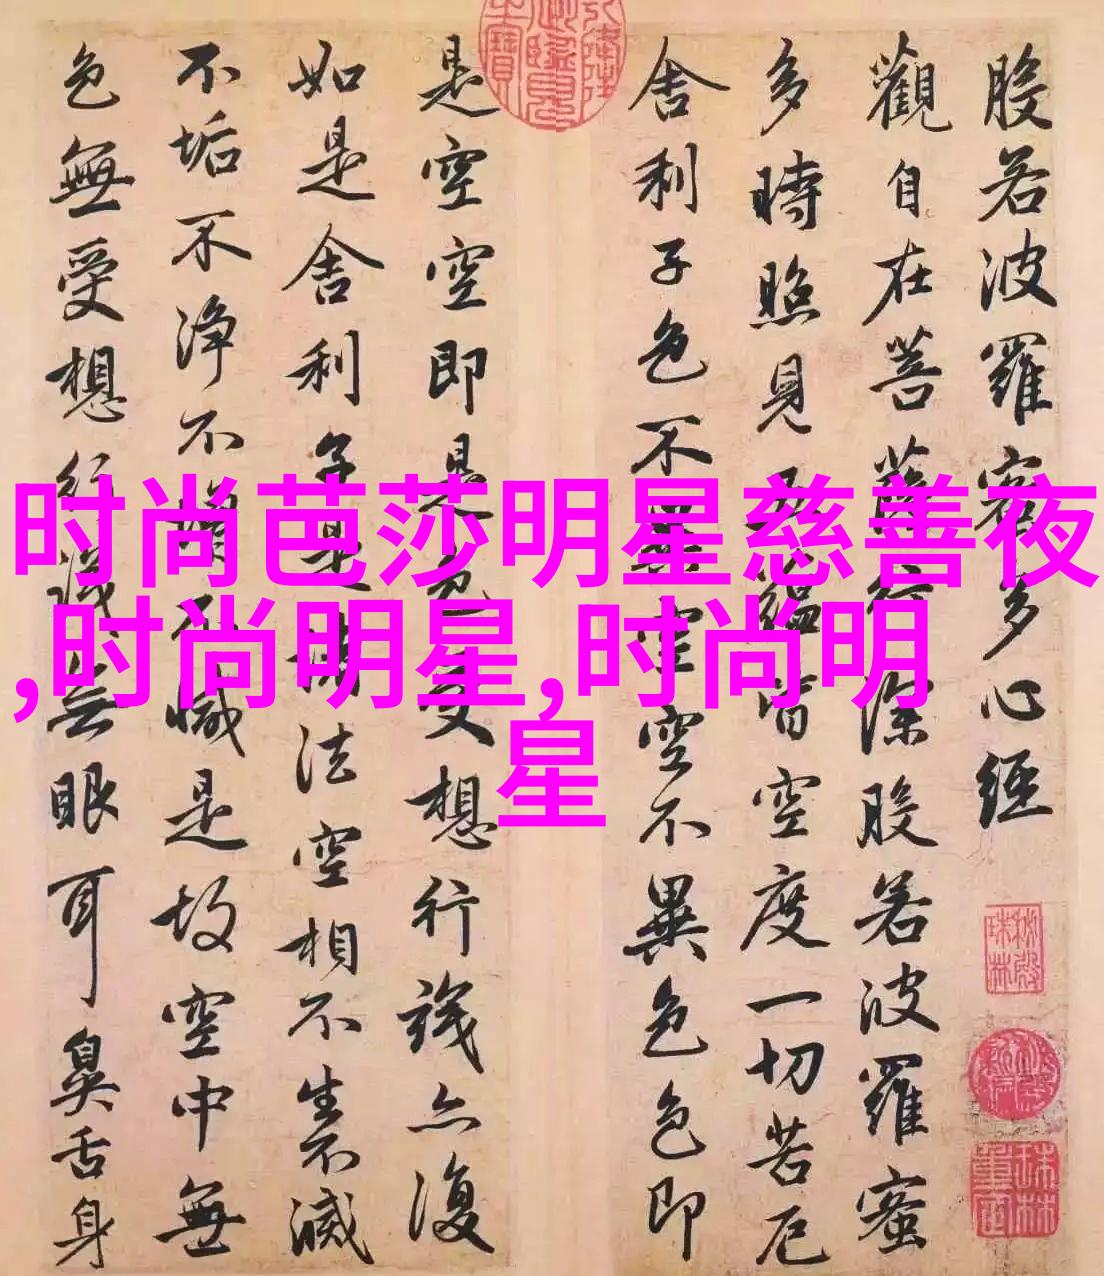 般若波羅蜜多心經
觀自在菩薩行深般若波羅蜜
多時照見五蘊皆空度一切苦厄
舍利子色不異空空不異色色即
是空空即是色受想行識亦復
如是舍利子是諸法空相不生不滅
不垢不淨不增不減是故空中無
色無受想行識无眼耳鼻舌身
时尚芭莎明星慈善夜
,时尚明星,时尚明
星